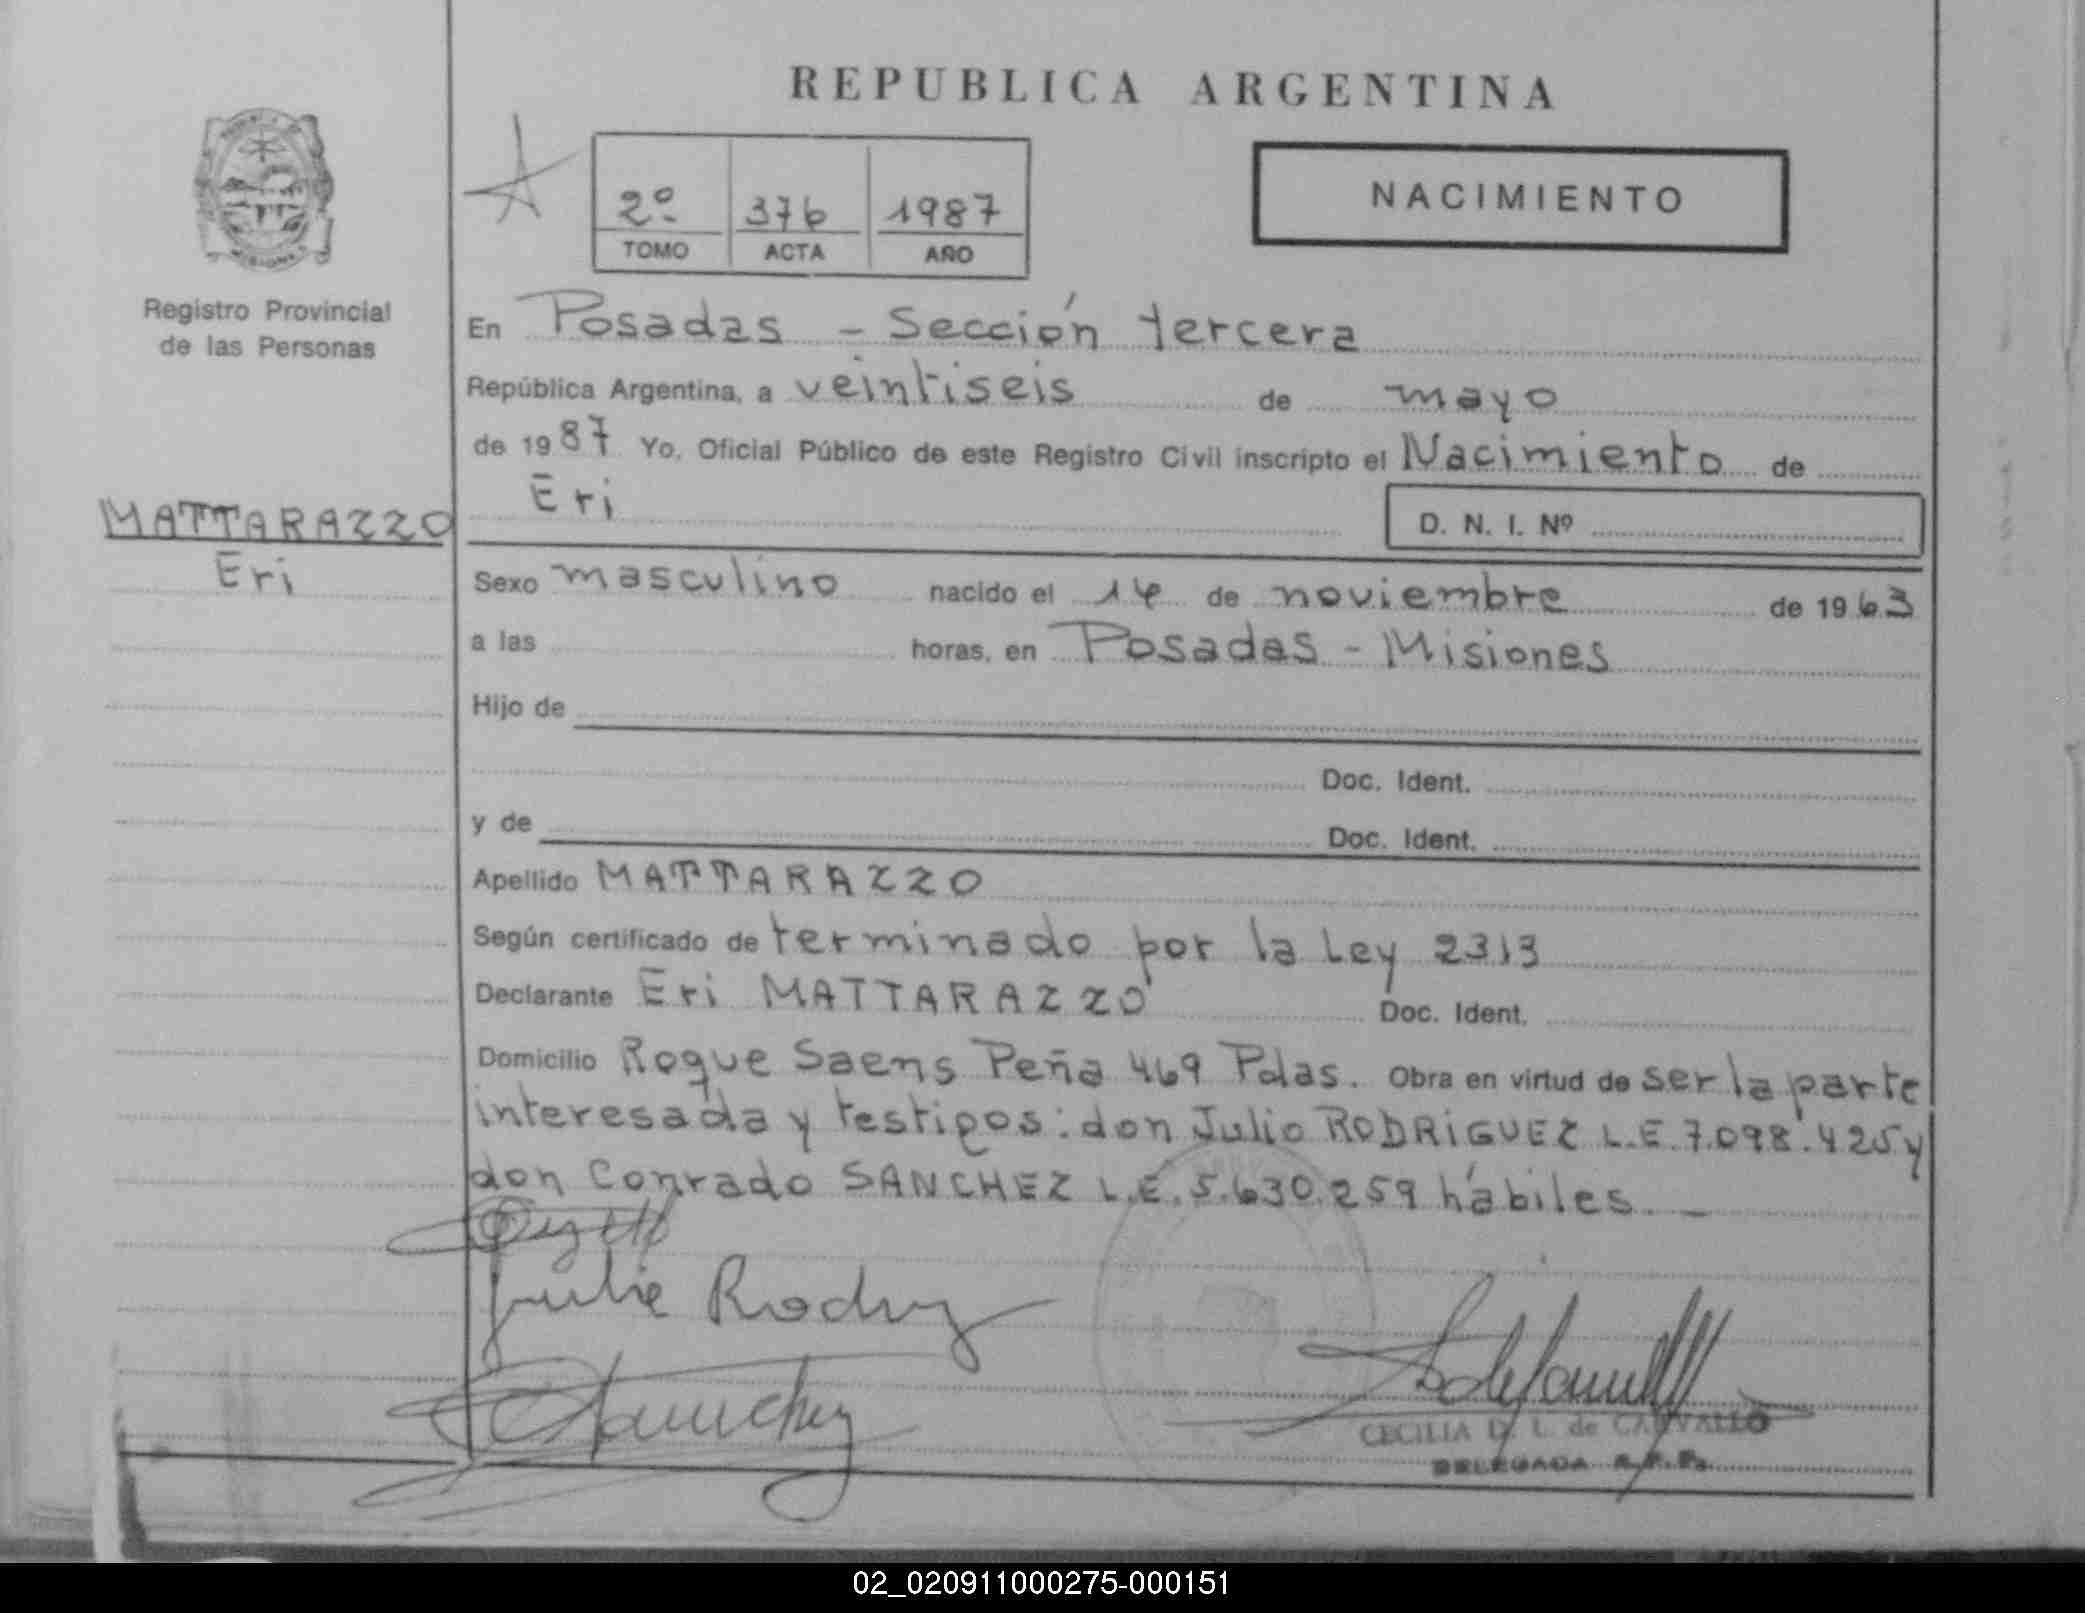 REPUBLICA ARGENTINA
2º 376 1987
TOMO ACTA AÑO
NACIMIENTO
Registro Provincial
de las Personas
MATTARAZZO
Eri
En Posadas - Sección tercera
República Argentina, a veintiseis de mayo
de 1987 Yo, Oficial Público de este Registro Civil inscripto el Nacimiento de
Eri D. N. I. Nº
Sexo masculino nacido el 14 de noviembre de 1963
a las horas, en Posadas - Misiones
Hijo de
Doc. Ident.
y de Doc. Ident.
Apellido MATTARAZZO
Según certificado de terminado por la Ley 2313
Declarante Eri MATTARAZZO Doc. Ident.
Domicilio Roque Saens Peña 469 Pdas. Obra en virtud de ser la parte
interesada y testigos: don Julio RODRIGUEZ L.E. 7.098.425 y
don Conrado SANCHEZ L.E. 5.630.259 hábiles. _
CECILIA D. L. de CARVALLO
DELEGADA R.P.P.
02_020911000275-000151